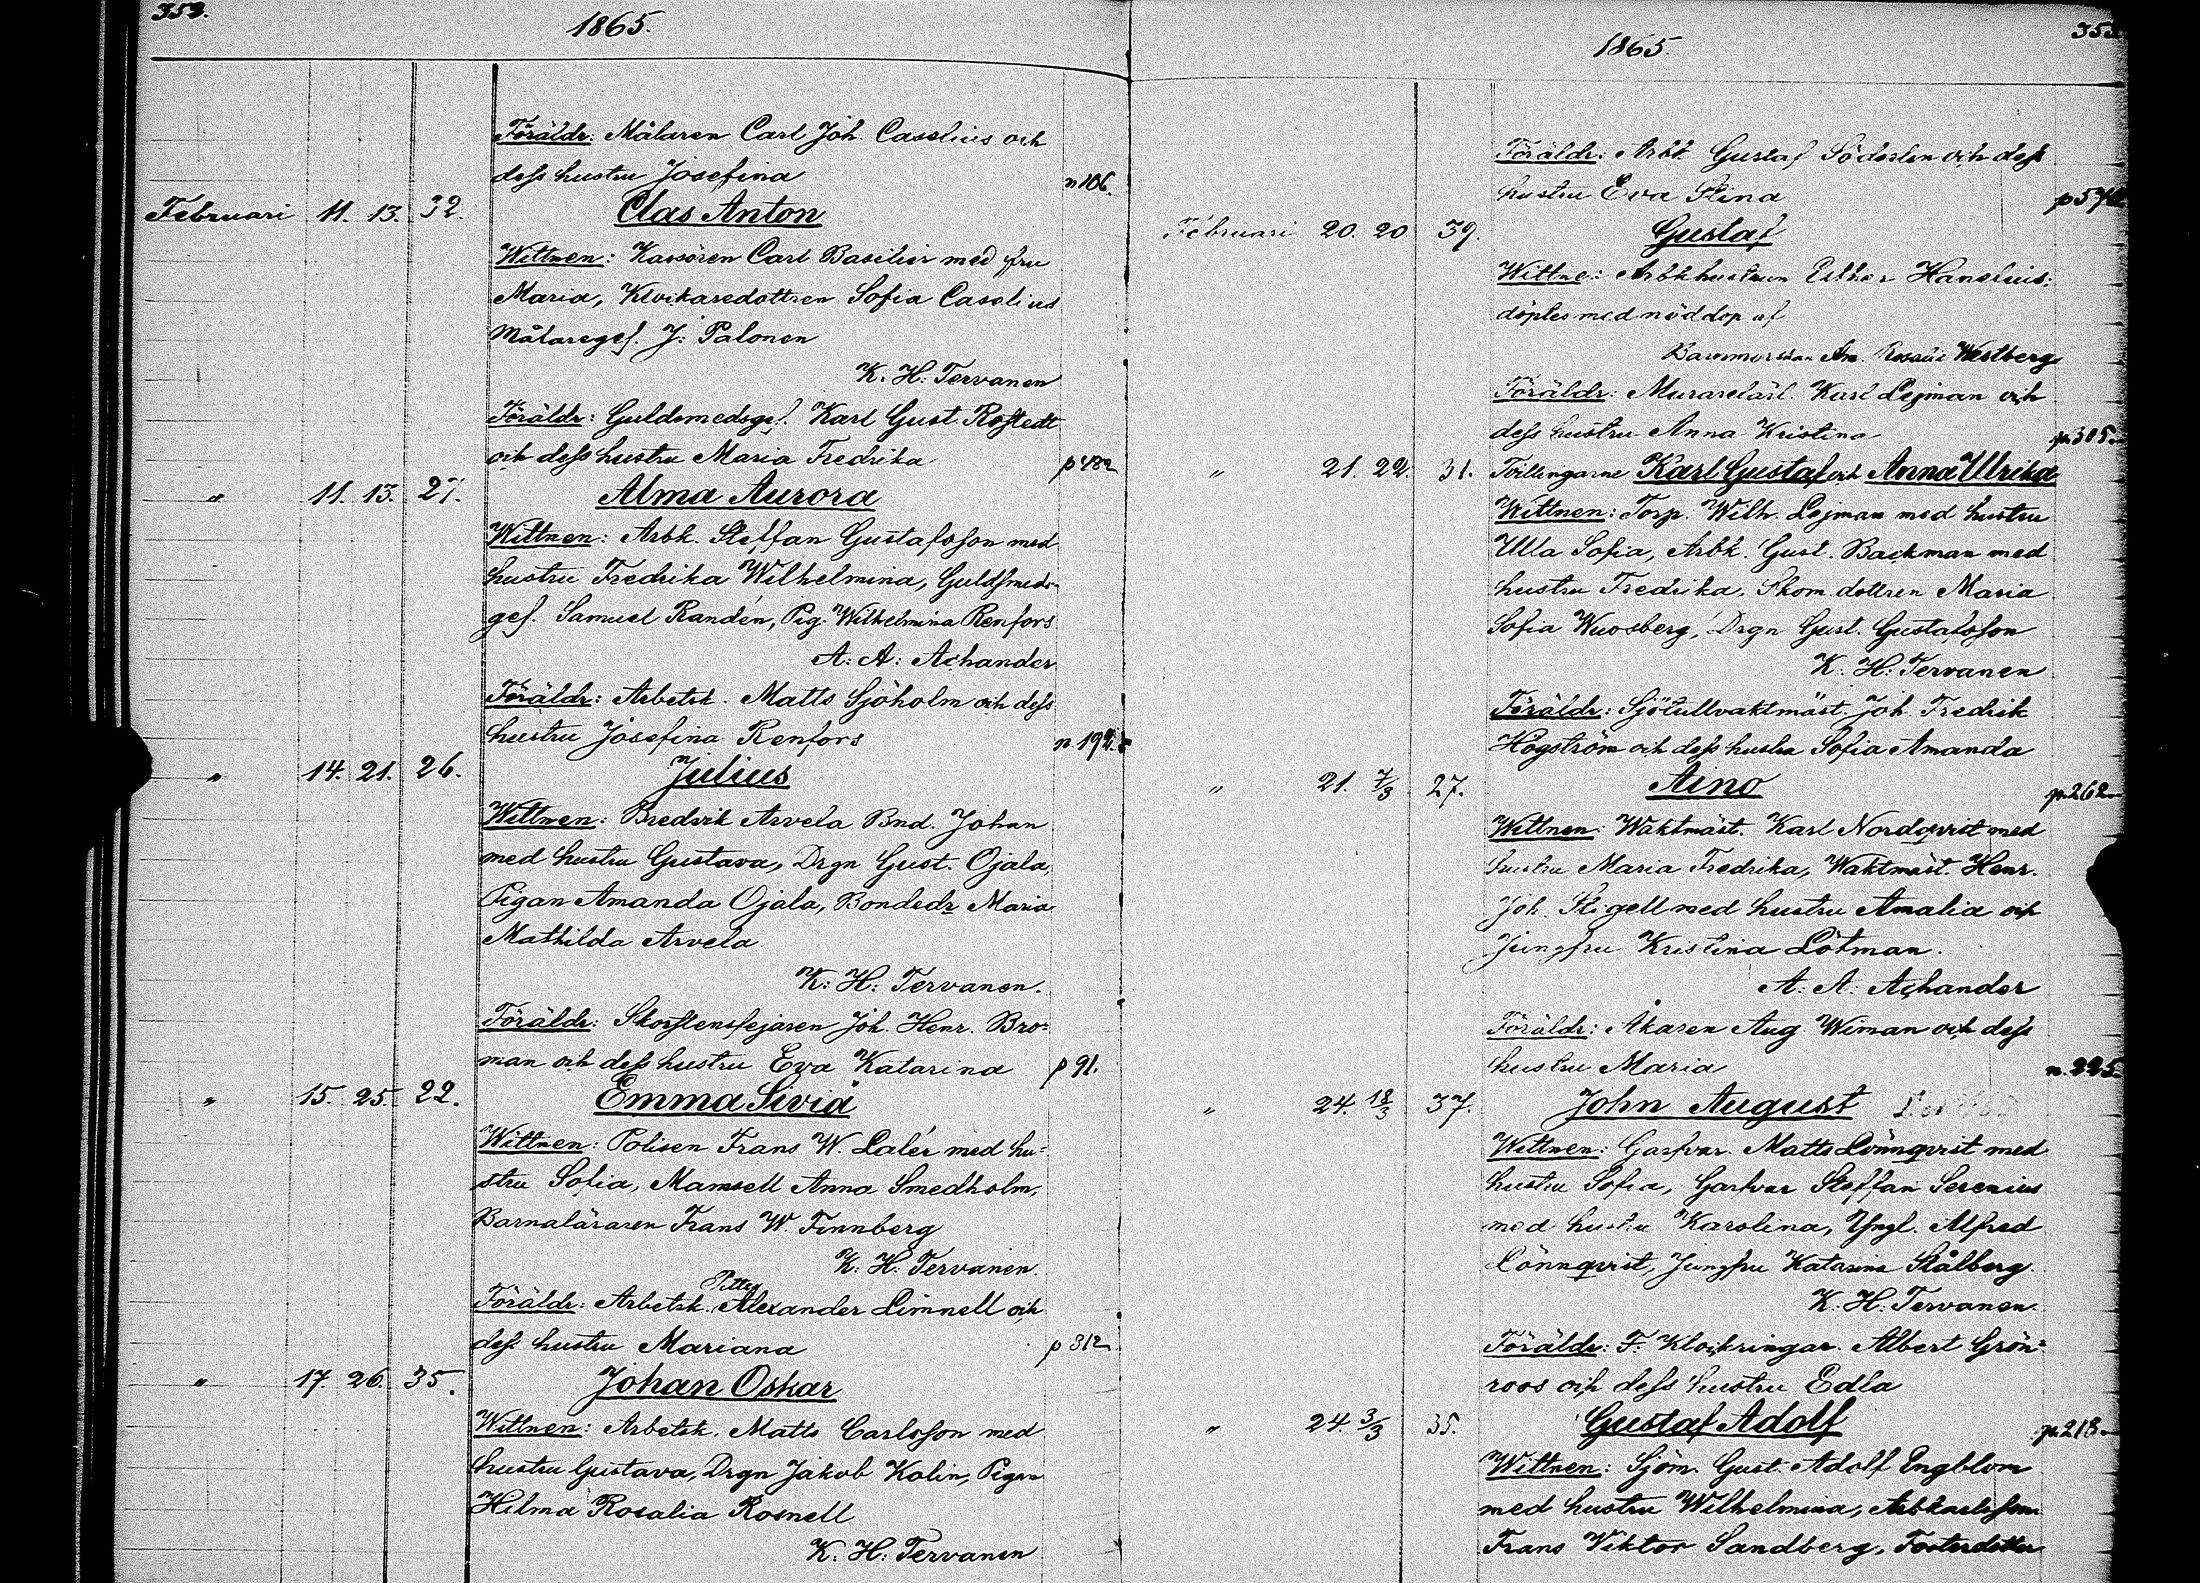 353.
1865.
Föräldr: Målaren Carl Joh. Caselius och
dess hustru Josefina n 106.
Februari 11. 13. 32. Clas Anton
Wittnen: Kassören Carl Basilier med fru
Maria, Klockaredottren Sofia Caselius
Målareges. J: Palonen
K. H: Tervanen
Föräldr: Guldsmedsges. Karl Gust. Rostedt
och dess hustru Maria Fredrika p 482
" 11. 13. 27. Alma Aurora
Wittnen: Arbk. Steffan Gustafsson med
hustru Fredrika Wilhelmina, Guldsmeds-
ges. Samuel Randén, Pig. Wilhelmina Renfors
A: A: Achander
Föräldr: Arbetsk. Matts Sjöholm och dess
hustru Josefina Renfors n. 192.
" 14. 21. 26. Julius
Wittnen: Bredvik Arvela Bnd. Johan
med hustru Gustava, Drgn Gust. Ojala,
Pigan Amanda Ojala, Bondedr Maria
Mathilda Arvela.
K: H: Tervanen.
Föräldr: Skorstensfejaren Joh. Henr. Bro=
man och dess hustru Eva Katarina p 91.
" 15. 25. 22. Emma Sivia
Wittnen: Polisen Frans W. Lalér med hu=
stru Sofia, Mamsell Anna Smedholm,
Barnaläraren Frans W. Finnberg
K: H: Tervanen.
Pitter
Föräldr: Arbetsk. Alexander Limnell och
dess hustru Mariana p 312
" 17. 26. 35. Johan Oskar
Wittnen: Arbetsk. Matts Carlsson med
hustru Gustava, Drgn Jakob Kolin, Pigan
Hilma Rosalia Rosnell
K: H: Tervanen
353
1865.
Föräldr: Arbk Gustaf Söderlen och dess
hustru Eva Stina
Februari 20. 20. 39. Gustaf
Wittne: Arbkhustrun Esther Hanelius;
döptes med nöddop af
Barnmorskan An. Rosalie Westberg
Föräldr: Murarelärl. Karl Lejman och
dess hustru Anna Kristina p. 305.
" 21. 22. 31. Tvillingarne Karl Gustaf och Anna Ulrika
Wittnen: Torp. Wilh. Lejman med hustru
Ulla Sofia, Arbk. Gust. Backman med
hustru Fredrika, Skom. dottren Maria
Sofia Wuosberg, Drgn Gust. Gustafsson
K. H: Tervanen
Föräldr: Sjötullvaktmäst. Joh. Fredrik
Högström och dess hustru Sofia Amanda
" 21. 7/3 27. Aino p. 262
Wittnen: Waktmäst. Karl Nordqvist med
hustru Maria Fredrika, Waktmäst. Henr.
Joh. Stigell med hustru Amalia och
Jungfru Kristina Lötman.
A. A. Achander
Föräldr: Åkaren Aug Wiman och dess
hustru Maria n. 225.
" 24. 18/3 37. John August
Wittnen: Garfvar. Matts Lönnqvist med
hustru Sofia, Garfvar Steffan Serenius
med hustru Karolina, Yngl. Alfred
Lönnqvist, Jungfru Katarina Stålberg.
K. H: Tervanen.
Föräldr: F. Klockringar. Albert Grön=
roos och dess hustru Edla
" 24. 3/3 35. Gustaf Adolf p. 218
Wittnen: Sjöm. Gust. Adolf Engblom
med hustru Wilhelmina, Arbkarlsson
Frans Viktor Sandberg, Fosterdotter